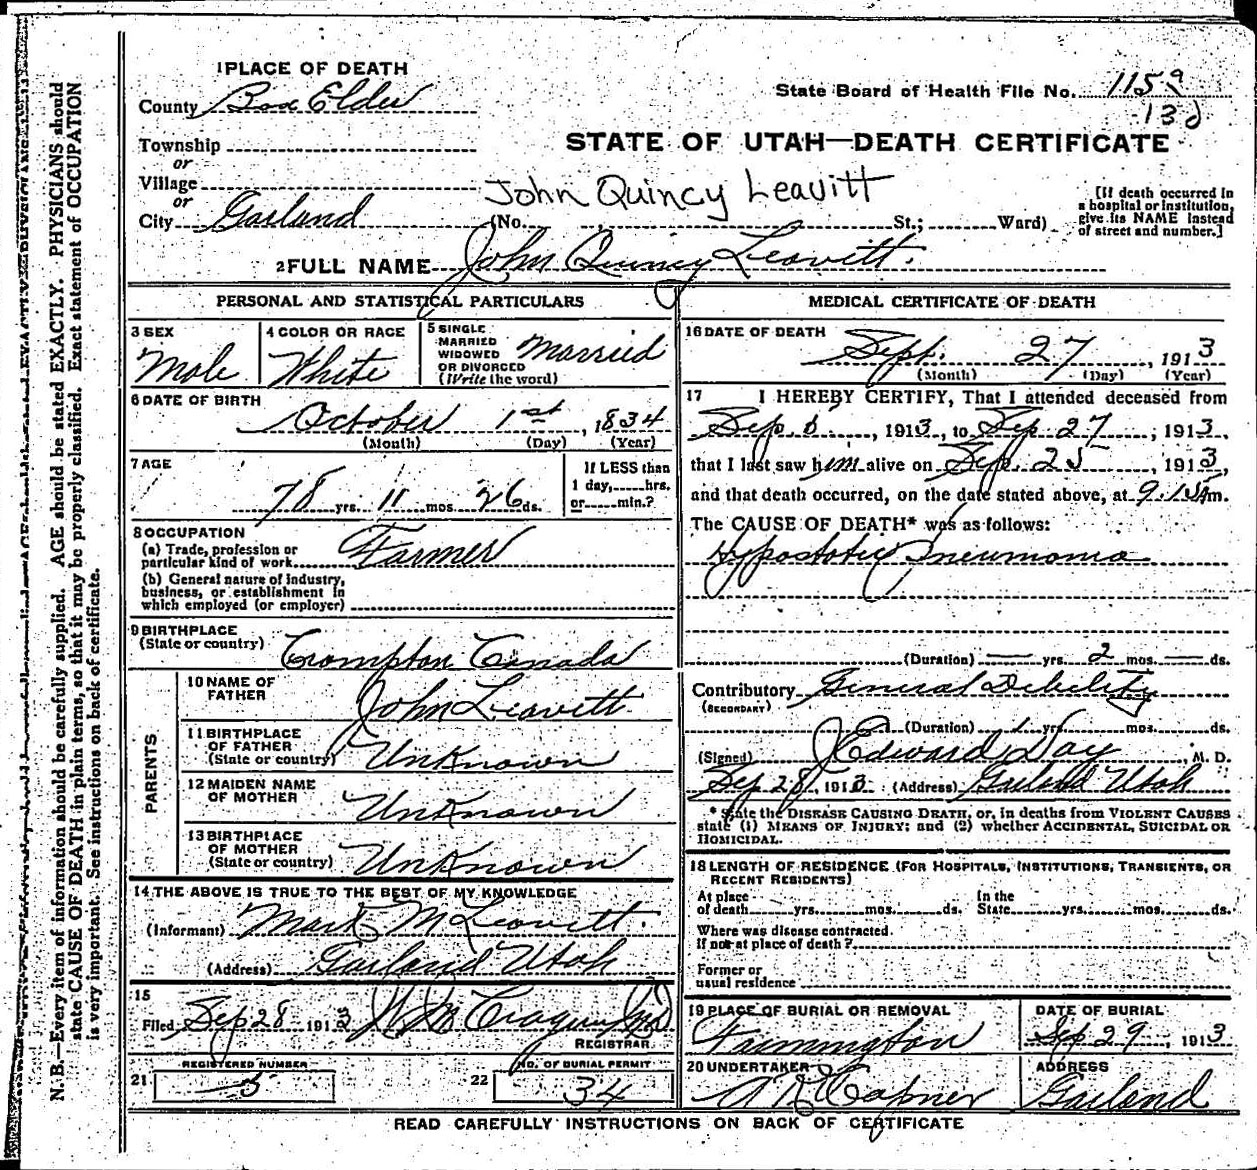 1 PLACE OF DEATH
County Box Elder
State Board of Health File No. 1159
13
Township
or
STATE OF UTAH—DEATH CERTIFICATE
Village
or
John Quincy Leavitt
City Garland (No. St.; Ward)
[If death occurred in
a hospital or institution,
give its NAME instead
of street and number.]
2 FULL NAME John Quincy Leavitt.
PERSONAL AND STATISTICAL PARTICULARS
3 SEX
Male
4 COLOR OR RACE
White
5 SINGLE
MARRIED
WIDOWED
OR DIVORCED
(Write the word)
Married
6 DATE OF BIRTH
October 1st, 1834
(Month) (Day) (Year)
7 AGE
78 yrs. 11 mos. 26 ds.
If LESS than
1 day, hrs.
or min.?
8 OCCUPATION
(a) Trade, profession or
particular kind of work Farmer
(b) General nature of industry,
business, or establishment in
which employed (or employer)
9 BIRTHPLACE
(State or country) Crompton Canada
PARENTS
10 NAME OF
FATHER John Leavitt
11 BIRTHPLACE
OF FATHER
(State or country) Unknown
12 MAIDEN NAME
OF MOTHER Unknown
13 BIRTHPLACE
OF MOTHER
(State or country) Unknown
14 THE ABOVE IS TRUE TO THE BEST OF MY KNOWLEDGE
(Informant) Mark M Leavitt.
(Address) Garland Utah
15
Filed Sep 28 1913
REGISTRAR
REGISTERED NUMBER
21 5
NO. OF BURIAL PERMIT
22 34
MEDICAL CERTIFICATE OF DEATH
16 DATE OF DEATH
Sept. 27, 1913
(Month) (Day) (Year)
17 I HEREBY CERTIFY, That I attended deceased from
Sep. 6, 1913, to Sep 27, 1913,
that I last saw him alive on Sep. 25, 1913,
and that death occurred, on the date stated above, at 9.15 Am.
The CAUSE OF DEATH* was as follows:
Hypostatic Pneumonia
(Duration) — yrs. 2 mos. — ds.
Contributory General Debility
(SECONDARY)
(Duration) 1 yrs. mos. ds.
(Signed) J Edward Day, M. D.
Sep 28, 1913 (Address) Garland Utah
* State the DISEASE CAUSING DEATH, or, in deaths from VIOLENT CAUSES
state (1) MEANS OF INJURY; and (2) whether ACCIDENTAL, SUICIDAL OR
HOMICIDAL.
18 LENGTH OF RESIDENCE (FOR HOSPITALS, INSTITUTIONS, TRANSIENTS, OR
RECENT RESIDENTS)
At place
of death yrs. mos. ds.
In the
State yrs. mos. ds.
Where was disease contracted
If not at place of death?
Former or
usual residence
19 PLACE OF BURIAL OR REMOVAL
DATE OF BURIAL
Sep 29, 1913
20 UNDERTAKER
A R Capner
ADDRESS
Garland
READ CAREFULLY INSTRUCTIONS ON BACK OF CERTIFICATE
N. B.—Every item of information should be carefully supplied. AGE should be stated EXACTLY. PHYSICIANS should
state CAUSE OF DEATH in plain terms, so that it may be properly classified. Exact statement of OCCUPATION
is very important. See instructions on back of certificate.